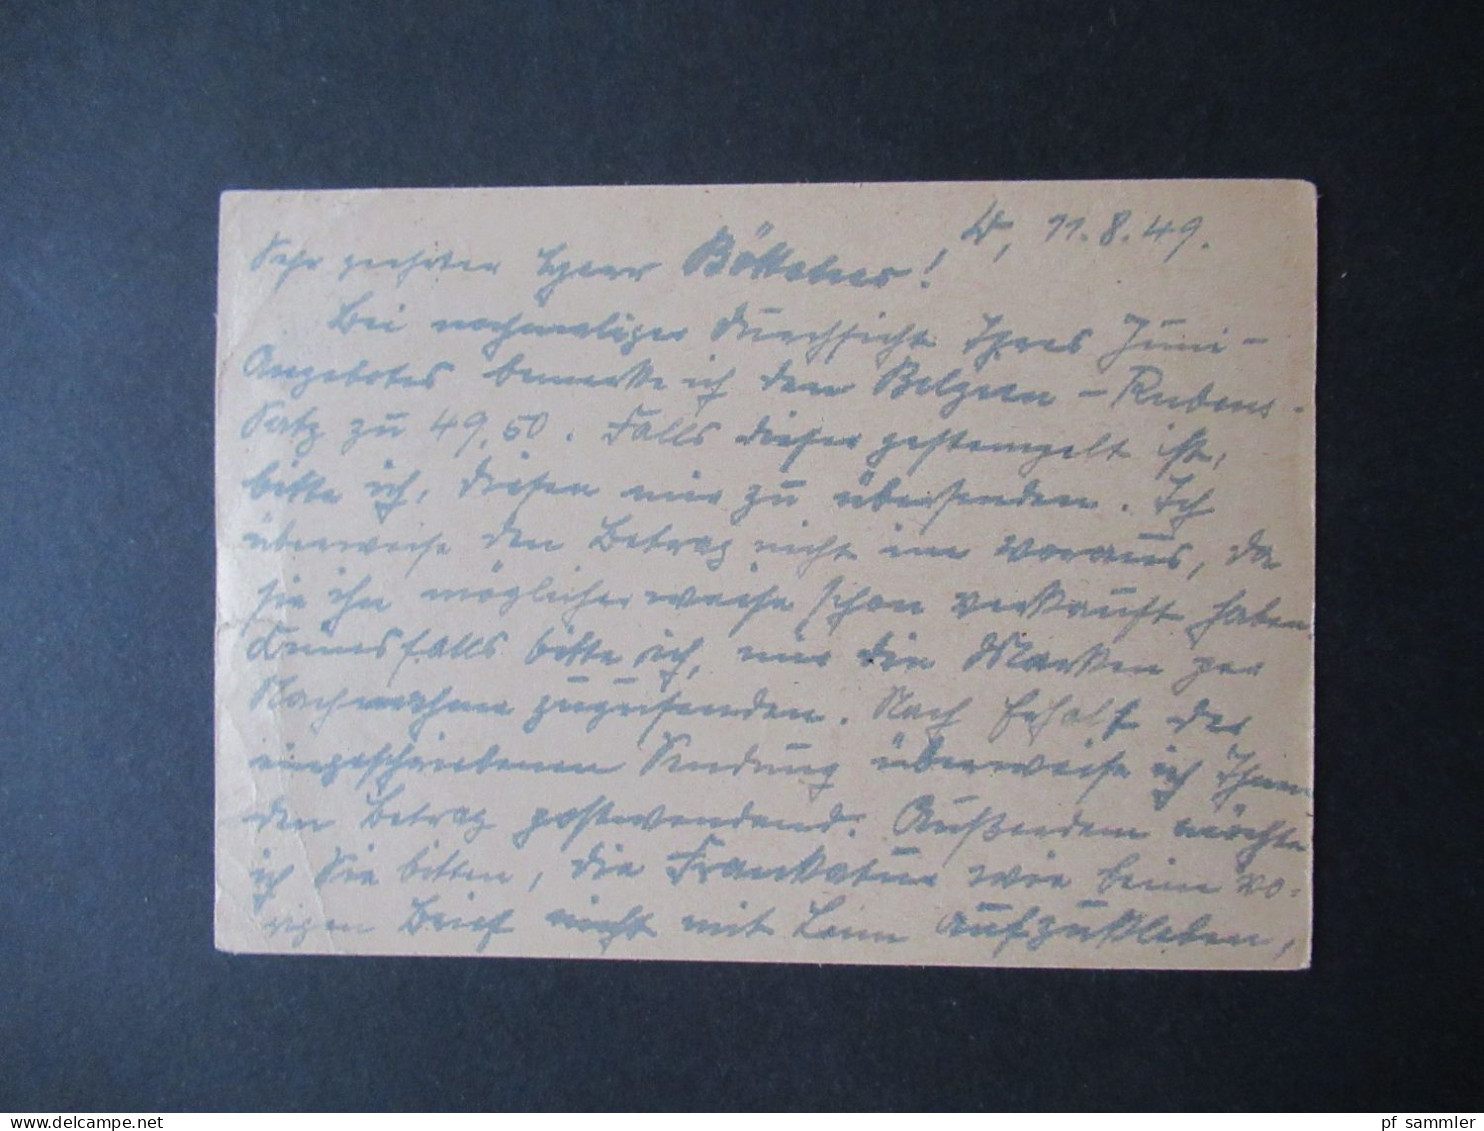 W, 11.8.49.
Sehr geehrter Herr Böttcher!
Bei nochmaliger Durchsicht Ihres Juni-
Angebotes bemerke ich den Belgien-Rubens-
Satz zu 49,50. Falls dieser gestempelt ist,
bitte ich, diesen mir zu übersenden. Ich
überweise den Betrag nicht im voraus, da
sie ihn möglicherweise schon verkauft haben.
Keinesfalls bitte ich, mir die Marken per
Nachnahme zuzusenden. Nach Erhalt der
eingeschriebenen Sendung überweise ich Ihnen
den Betrag postwendend. Außerdem möchte
ich Sie bitten, die Frankatur wie beim vo-
rigen Brief nicht mit Leim aufzukleben,
www.delcampe.net
pf sammler